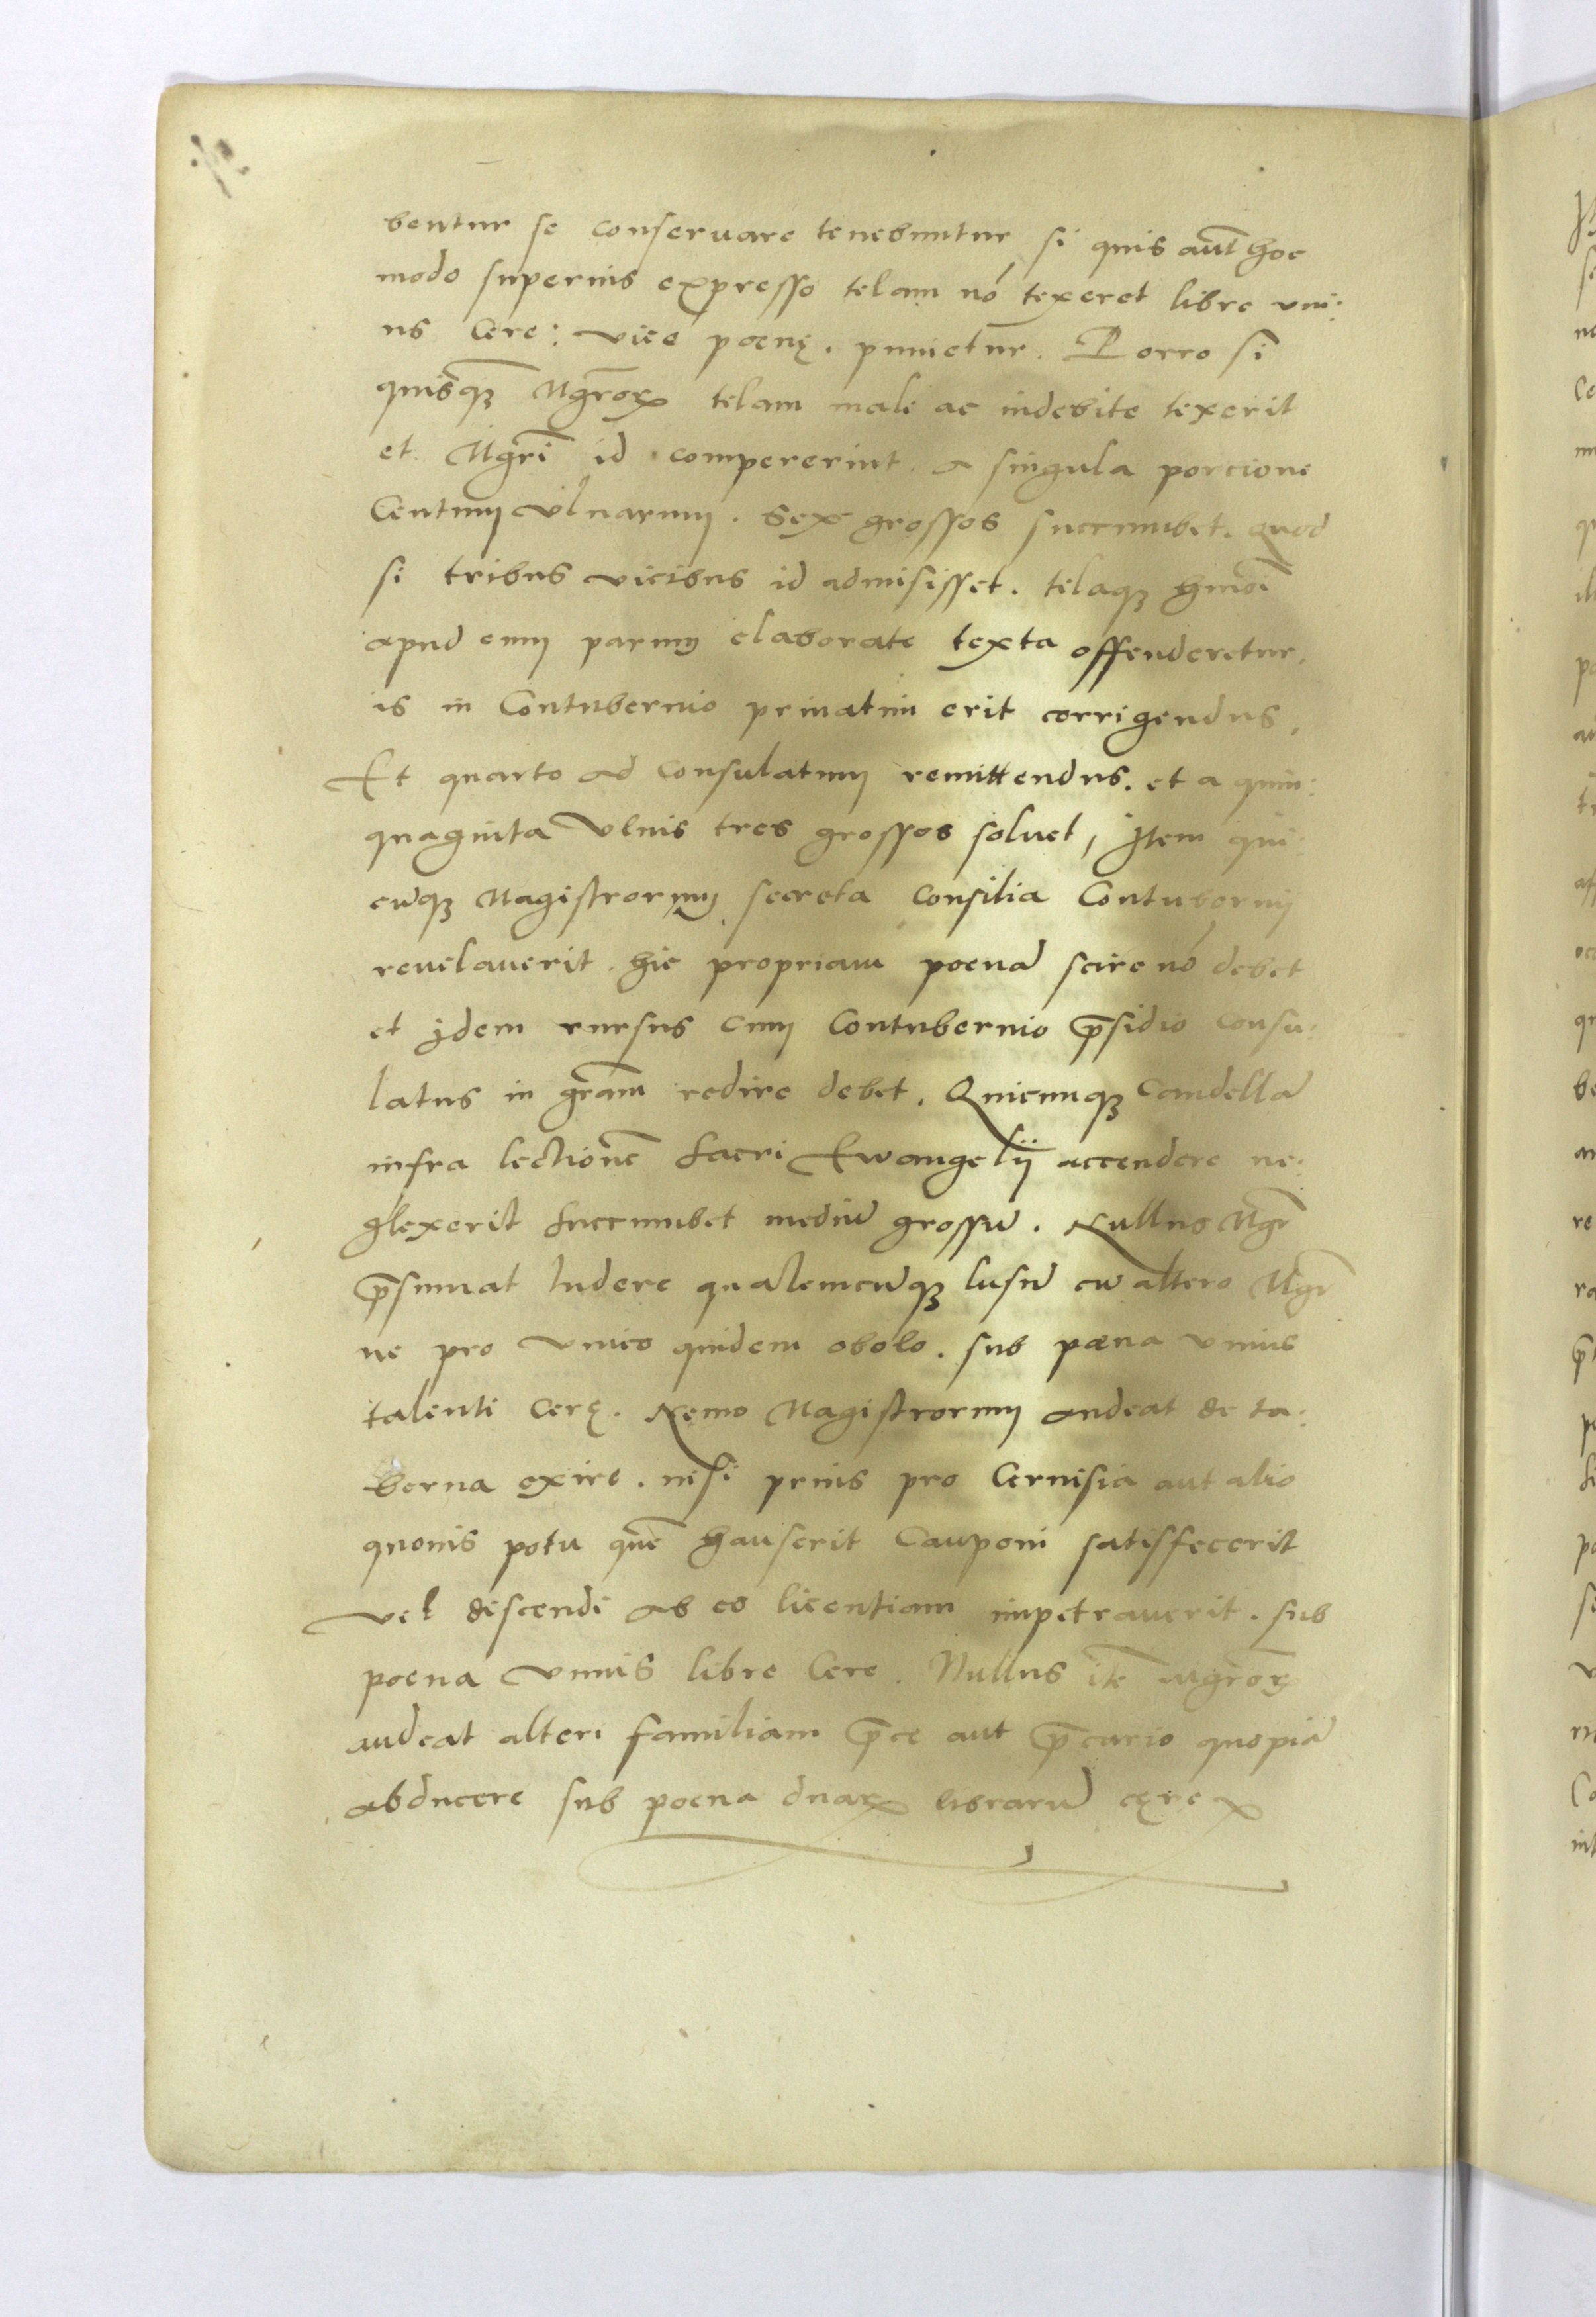 bentur se conseruare tenebuntur, si quis aut̄ hoc
modo superius expresso telam nō texeret libre vni:
us Cere: vice poenę. punietur. Porro si
quisq̨ꝫ Mgr̄oꝝ telam male ac indebite texerit
et Mgr̄i id compererint. a singula porcione
Centum vlnarum. Sex grossos succumbet. quod
si tribus vicibus id admisisset. telaqꝫ hmōi
apud eum parum elaborate texta offenderetur,
is in Contubernio priuatim erit corrigendus,
Et quarto ad Consulatum remittendus. et a quin:
quaginta vlnis tres grossos soluet, Item qui:
cūqꝫ Magistrorum secreta Consilia Contubernij
reuelauerit. hic propriam poenā scire nō debet
et idem rursus cum Contubernio p̄sidio Consu:
latus in gr̄am redire debet. Quicumqꝫ Candellā
infra lectionē sacri Ewangelij accendere ne:
glexerit succumbet mediū grossū. Nullus Mgr̄
p̄sumat ludere qualemcūqꝫ lusū cū altero Mgr̄
ne pro vnico quidem obolo. sub pæna vnius
talenti Cerę. Nemo Magistrorum audeat de ta:
berna exire. nisi prius pro Ceruisia aut alio
quouis potu quē hauserit Cauponi satisfecerit
vel discendi ab eo licentiam impetrauerit. sub
poena vnius libre Cere. Nullus itē mgr̄oꝝ
audeat alteri familiam p̄ce aut p̄cario quopiā
abducere sub poena duaꝝ librarū cęre